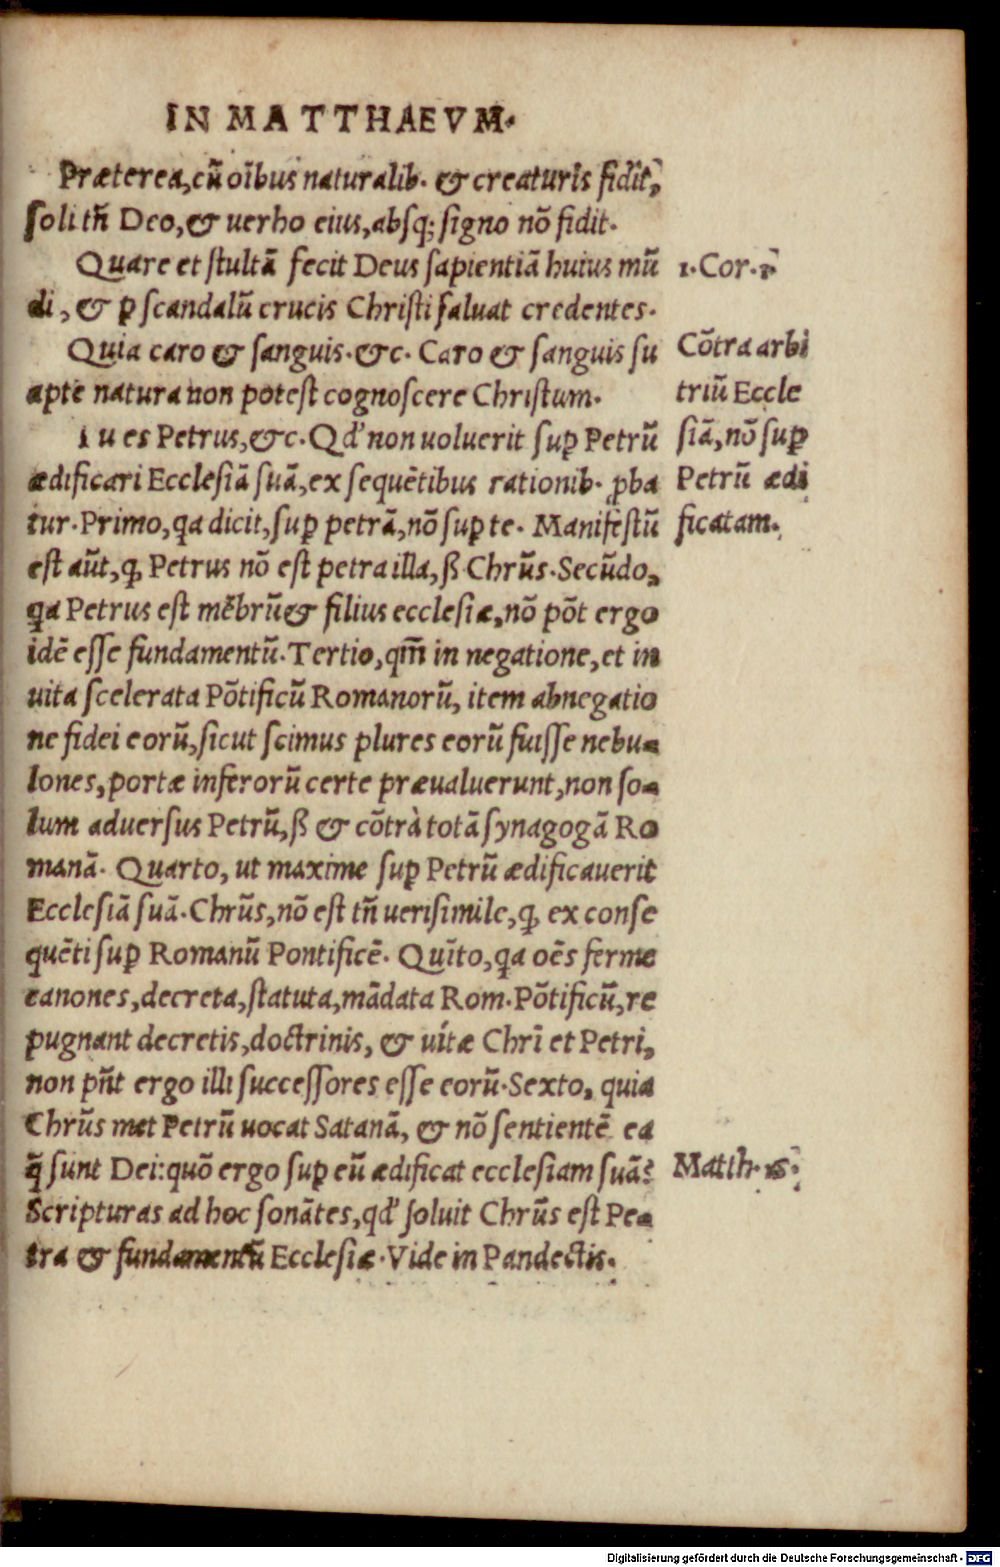 IN MATTHAEVM.
Præterea, cũ oĩbus naturalib. & creaturis fidit,
soli tñ Deo, & uerbo eius, absq; signo nõ fidit.
Quare et stultã fecit Deus sapientiã huius mũ
di, & ꝑ scandalũ crucis Christi saluat credentes.
Quia caro & sanguis. &c. Caro & sanguis su
apte natura non potest cognoscere Christum.
Tu es Petrus, &c. Qđ non uoluerit suꝑ Petrũ
ædificari Ecclesiã suã, ex sequẽtibus rationib. ꝓba
tur. Primo, qa dicit, suꝑ petrã, nõ suꝑ te. Manifestũ
est aũt, ꝙ Petrus nõ est petra illa, ß Chrũs. Secũdo,
qa Petrus est mẽbrũ & filius ecclesiæ, nõ põt ergo
idẽ esse fundamentũ. Tertio, qm̃ in negatione, et in
uita scelerata Põtificũ Romanorũ, item abnegatio
ne fidei eorũ, sicut scimus plures eorũ fuisse nebu-
lones, portæ inferorũ certe præualuerunt, non so-
lum aduersus Petrũ, ß & cõtrà totã synagogã Ro
manã. Quarto, ut maxime suꝑ Petrũ ædificauerit
Ecclesiã suã. Chrũs, nõ est tñ uerisimile, ꝙ ex conse
quẽti suꝑ Romanũ Pontificẽ. Quĩto, qa oẽs ferme
canones, decreta, statuta, mãdata Rom. Põtificũ, re
pugnant decretis, doctrinis, & uitæ Chrĩ et Petri,
non pñt ergo illi successores esse eorũ. Sexto, quia
Chrũs met Petrũ uocat Satanã, & nõ sentientẽ ea
q̃ sunt Dei: quõ ergo suꝑ eũ ædificat ecclesiam suã?
Scripturas ad hoc sonãtes, qđ soluit Chrũs est Pe-
tra & fundamentũ Ecclesiæ. Vide in Pandectis.
1. Cor. 1
Cõtra arbi
triũ Eccle
siã, nõ suꝑ
Petrũ ædi
ficatam.
Matth. 16.
Digitalisierung gefördert durch die Deutsche Forschungsgemeinschaft - DFG